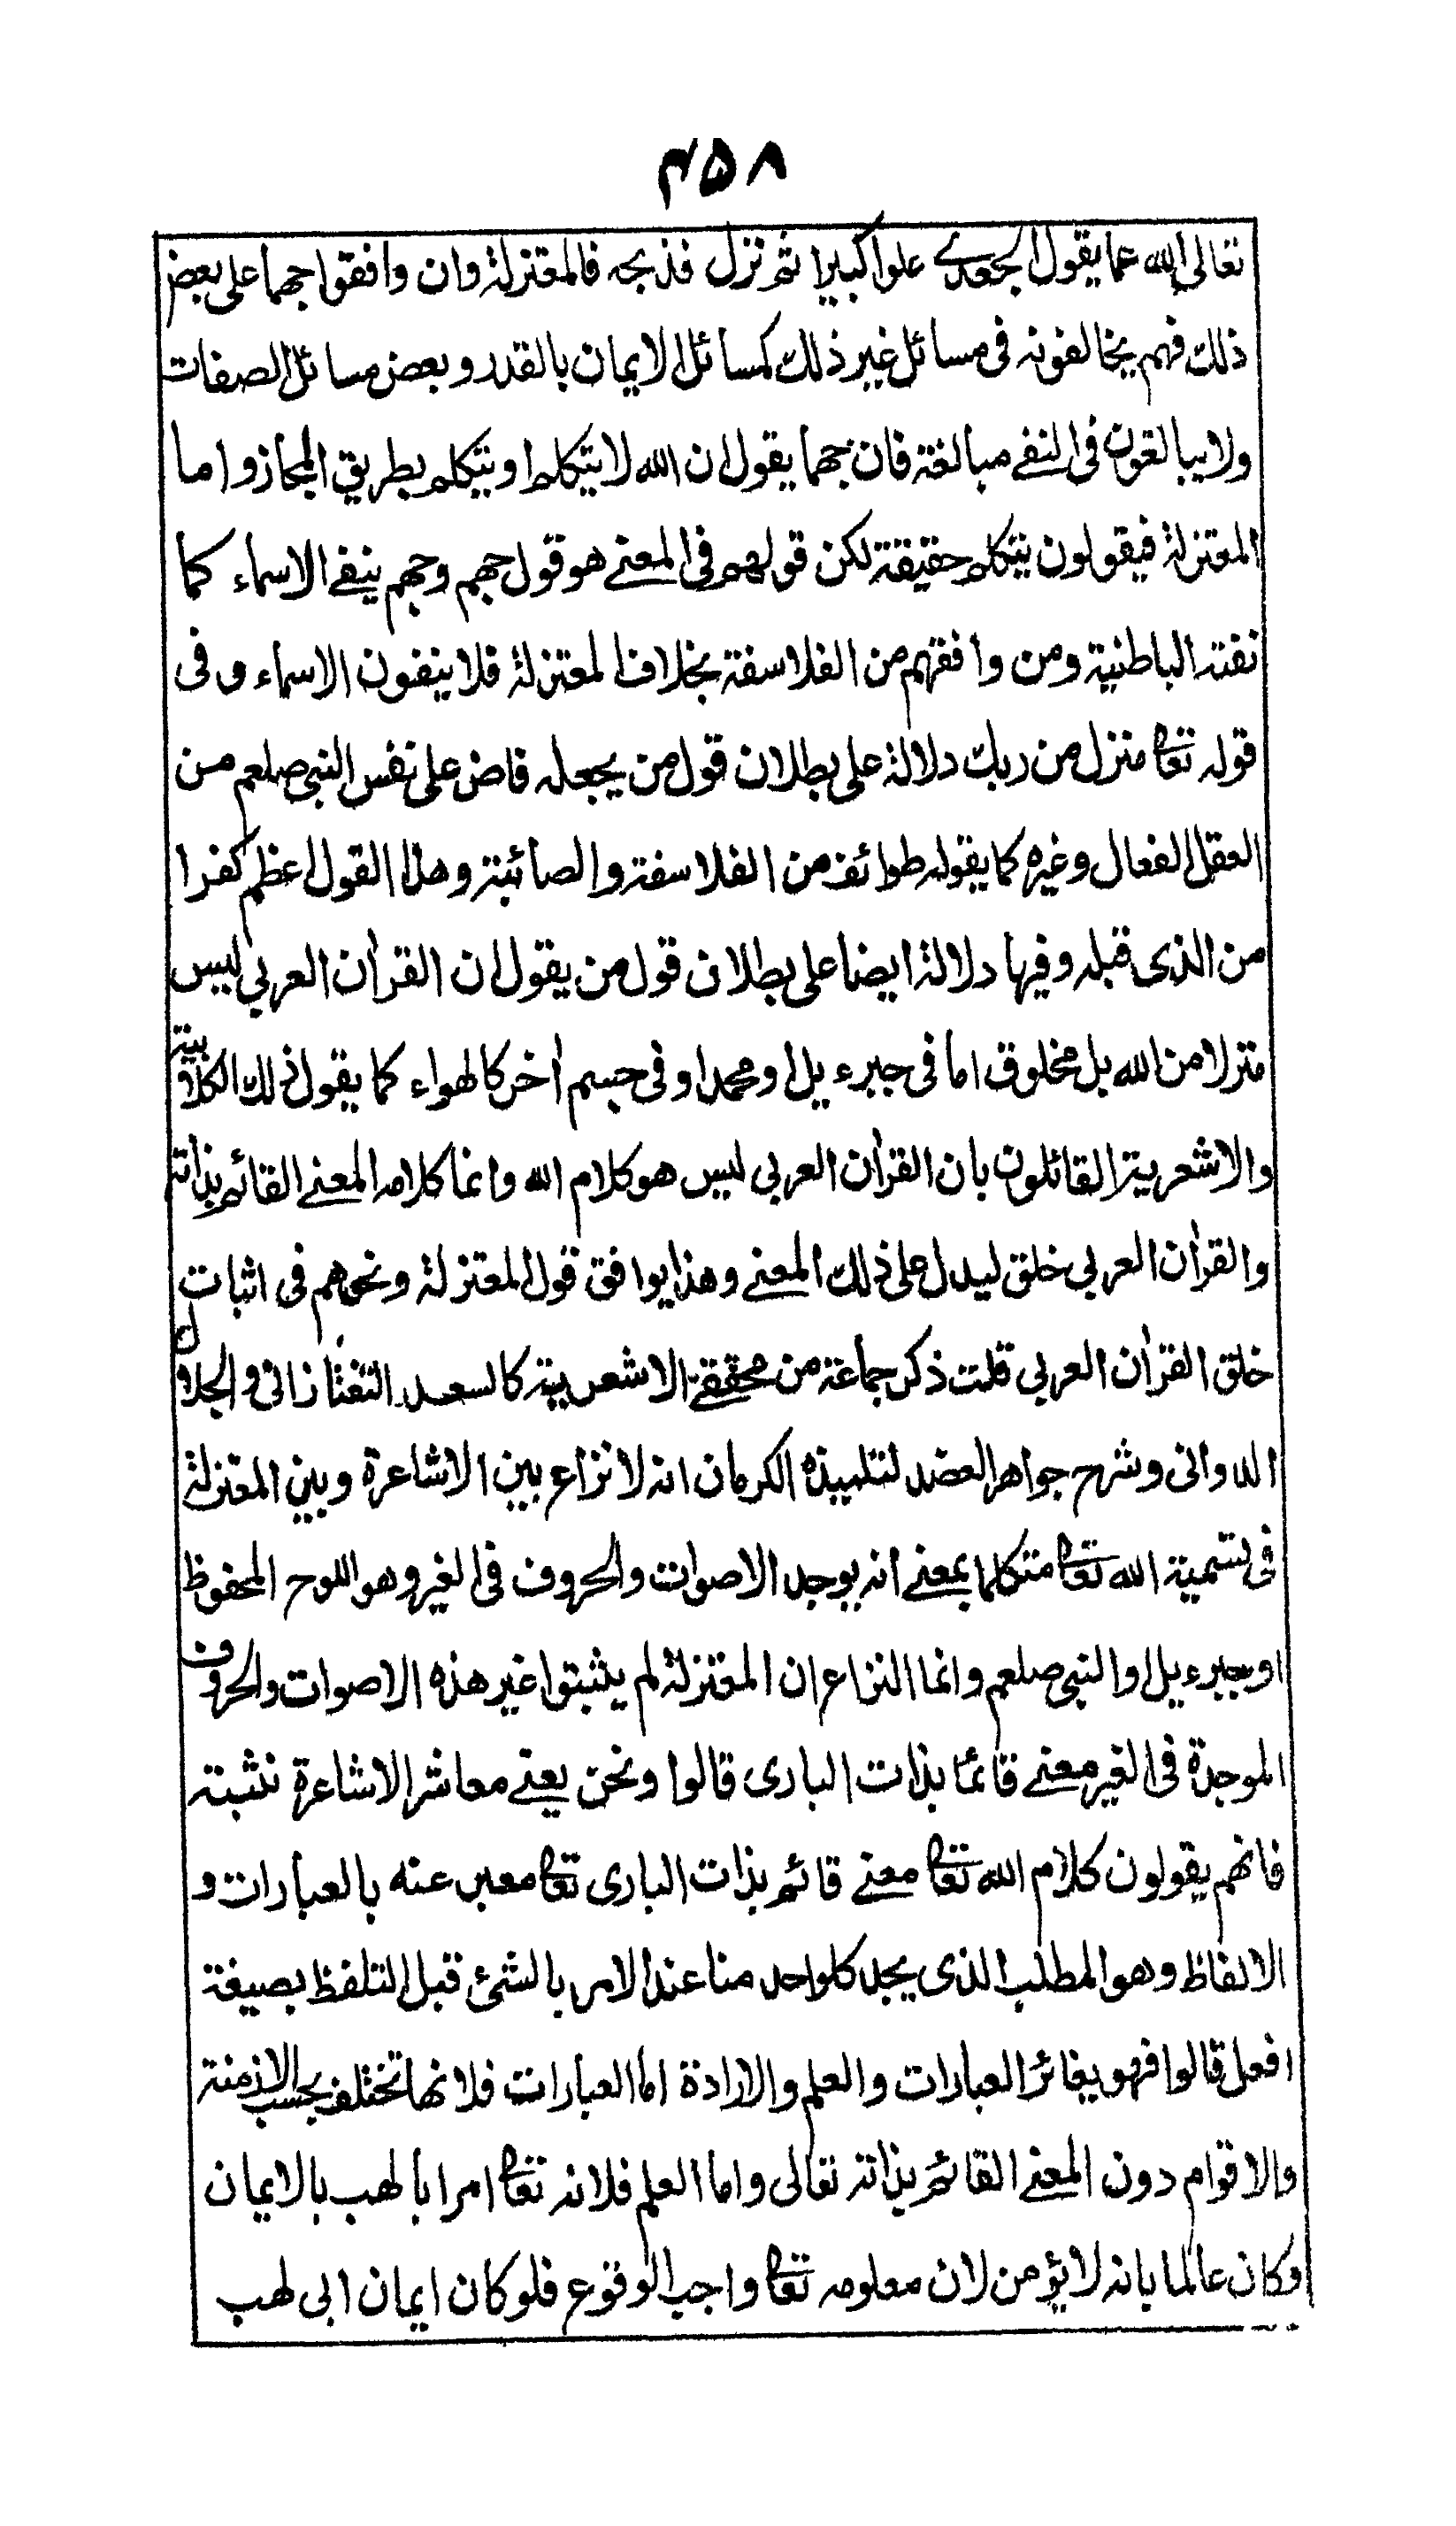 ٤٥٨
تعالى الله عما يقول الجعدے علوا كبيرا ثم نزل فذبحه فالمعتزلة وان وافقوا جهما على بعض
ذلك فهم يخالفونه فى مسائل غير ذلك كمسائل الايمان بالقدر وبعض مسائل الصفات
ولا يبالغون فى النفے مبالغة فان جهما يقول ان الله لا يتكلم او يتكلم بطريق المجاز واما
المعتزلة فيقولون يتكلم حقيقة لكن قولهم فى المعنے هو قول جهم وجهم ينفے الاسماء كما
نفته الباطنية ومن وافقهم من الفلاسفة بخلاف المعتزلة فلا ينفون الاسماء وفى
قوله تعا منزل من ربك دلالة على بطلان قول من يجعله فاض على نفس النبى صلعم من
العقل الفعال وغيره كما يقوله طوائف من الفلاسفة والصائبة وهذا القول اعظم كفرا
من الذى قبله وفيها دلالة ايضا على بطلان قول من يقول ان القرآن العربي ليس
منزلا من الله بل مخلوق اما فى جبرءيل او محمد او فى جسم آخر كالهواء كما يقول ذلك الكلابية
والاشعرية القائلون بان القرآن العربي ليس هو كلام الله وانما كلامه المعنے القائم بذاته
والقرآن العربي خلق ليدل على ذلك المعنے وهذا يوافق قول المعتزلة ونحوهم فى اثبات
خلق القرآن العربي قلت ذكر جماعة من محققے الاشعرية كالسعد التفتازانى والجلال
الدوانى وشرح جواهر العضد لتلميذه الكرمان انه لا نزاع بين الاشاعرة وبين المعتزلة
فى تسمية الله تعا متكلما بمعنے انه يوجد الاصوات والحروف فى الغير وهو اللوح المحفوظ
او جبرءيل او النبى صلعم وانما النزاع ان المعتزلة لم يثبتوا غير هذه الاصوات والحروف
الموجدة فى الغير معنے قائما بذات البارى قالوا ونحن يعنے معاشر الاشاعرة نثبته
فانهم يقولون كلام الله تعا معنے قائم بذات البارى تعا معبر عنه بالعبارات و
الالفاظ وهو المطلب الذى يجد كلواحد منا عند الامر بالشئ قبل التلفظ بصيغة
افعل قالوا فهو يغائر العبارات والعلم والارادة اما العبارات فلانها تختلف بحسب الازمنة
والاقوام دون المعنے القائم بذاته تعالى واما العلم فلانه تعا امر ابا لهب بالايمان
وكان عالما بانه لا يؤمن لان معلومه تعا واجب الوقوع فلو كان ايمان ابى لهب